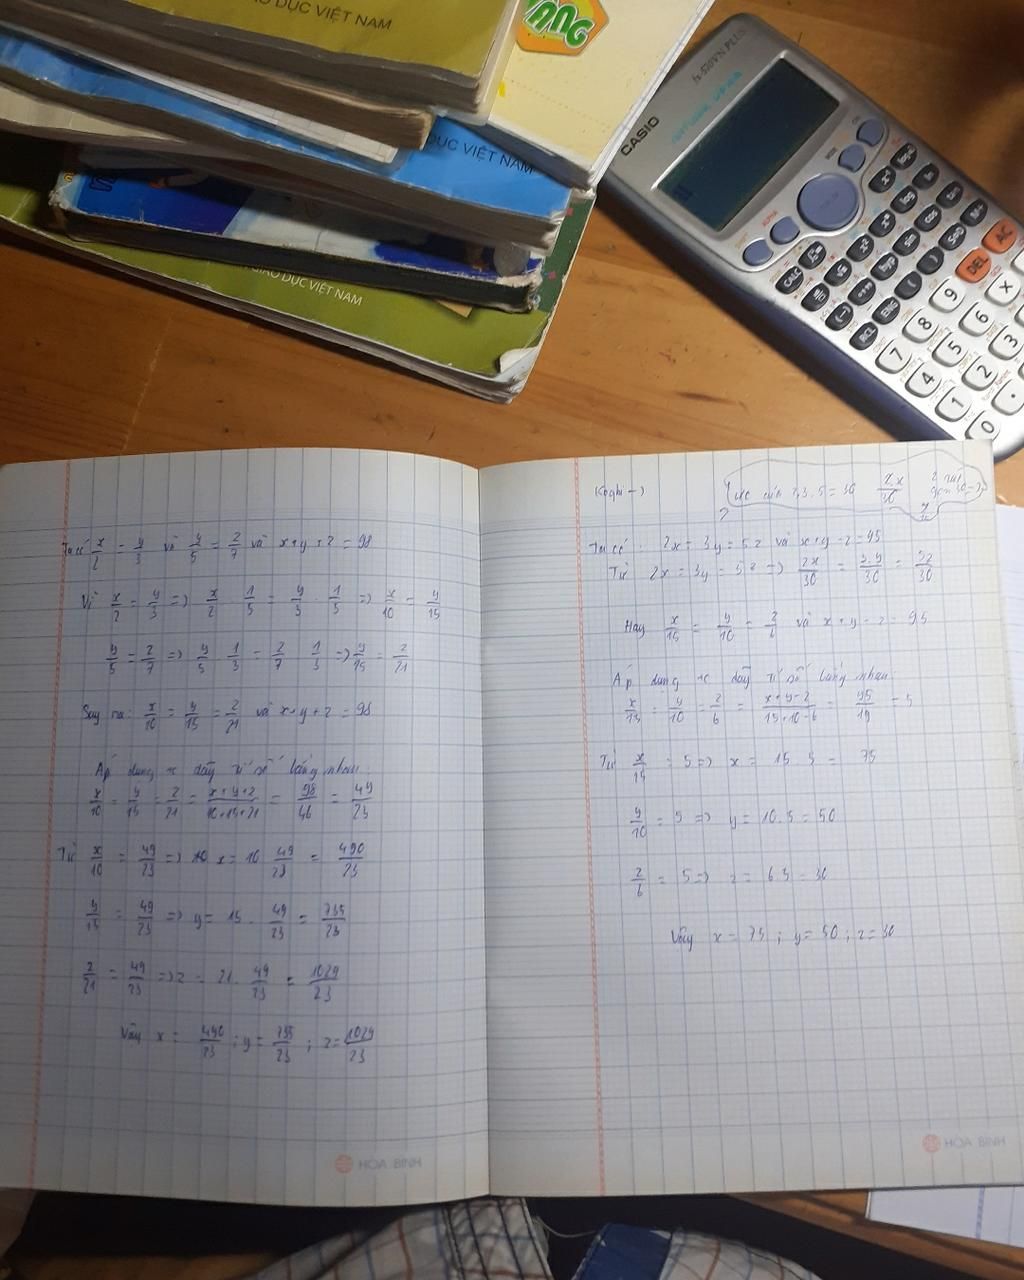 GIÁO DỤC VIỆT NAM
VANG
DỤC VIỆT NAM
GIÁO DỤC VIỆT NAM
CASIO
fx-570VN PLUS
NATURAL-V.P.A.M.
CALC
hyp
sin
cos
log
ln
RCL
ENG
S⇔D
M+
7 8 9 DEL AC
4 5 6 ×
1 2 3
0 .
Ta có x/2 = y/3 và y/5 = z/7 và x+y+z = 98
Vì x/2 = y/3 => x/2 . 1/5 = y/3 . 1/5 => x/10 = y/15
y/5 = z/7 => y/5 . 1/3 = z/7 . 1/3 => y/15 = z/21
Suy ra: x/10 = y/15 = z/21 và x+y+z = 98
Áp dụng tc dãy tỉ số bằng nhau:
x/10 = y/15 = z/21 = x+y+z/10+15+21 = 98/46 = 49/23
Từ x/10 = 49/23 => x = 10 . 49/23 = 490/23
y/15 = 49/23 => y = 15 . 49/23 = 735/23
z/21 = 49/23 => z = 21 . 49/23 = 1029/23
Vậy x = 490/23 ; y = 735/23 ; z = 1029/23
HÒA BÌNH
(Ko ghi →)
2.3.5 = 30 2x/30
Ta có: 2x = 3y = 5z và x+y-z = 95
Từ 2x = 3y = 5z => 2x/30 = 3y/30 = 5z/30
Hay x/15 = y/10 = z/6 và x+y-z = 95
Áp dụng tc dãy tỉ số bằng nhau:
x/15 = y/10 = z/6 = x+y-z/15+10-6 = 95/19 = 5
Từ x/15 = 5 => x = 15.5 = 75
y/10 = 5 => y = 10.5 = 50
z/6 = 5 => z = 6.5 = 30
Vậy x = 75 ; y = 50 ; z = 30
HÒA BÌNH